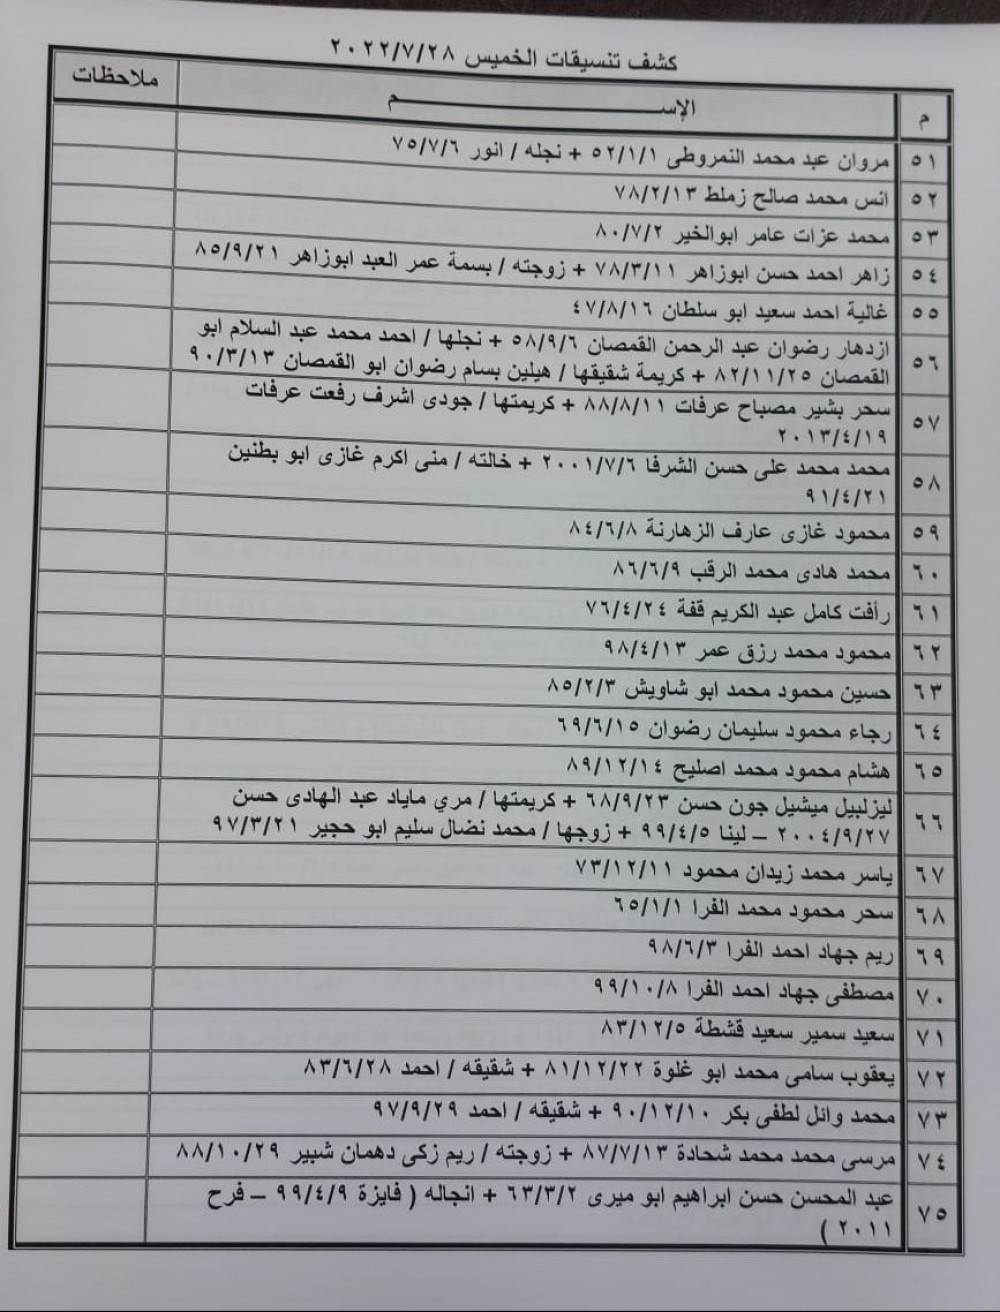 كشف تنسيقات الخميس ٢٠٢٢/٧/٢٨
م الإســـــــــم ملاحظات
٥١ مروان عبد محمد النمروطى ٥٢/١/١ + نجله / انور ٧٥/٧/٦
٥٢ انس محمد صالح زملط ٧٨/٢/١٣
٥٣ محمد عزات عامر ابوالخير ٨٠/٧/٢
٥٤ زاهر احمد حسن ابوزاهر ٧٨/٣/١١ + زوجته / بسمة عمر العبد ابوزاهر ٨٥/٩/٢١
٥٥ غالية احمد سعيد ابو سلطان ٤٧/٨/١٦
٥٦ ازدهار رضوان عبد الرحمن القمصان ٥٨/٩/٦ + نجلها / احمد محمد عبد السلام ابو
القمصان ٨٢/١١/٢٥ + كريمة شقيقها / هيلين بسام رضوان ابو القمصان ٩٠/٣/١٣
٥٧ سحر بشير مصباح عرفات ٨٨/٨/١١ + كريمتها / جودى اشرف رفعت عرفات
٢٠١٣/٤/١٩
٥٨ محمد محمد على حسن الشرفا ٢٠٠١/٧/٦ + خالته / منى اكرم غازى ابو بطنين
٩١/٤/٢١
٥٩ محمود غازى عارف الزهارنة ٨٤/٦/٨
٦٠ محمد هادى محمد الرقب ٨٦/٦/٩
٦١ رأفت كامل عبد الكريم قفة ٧٦/٤/٢٤
٦٢ محمود محمد رزق عمر ٩٨/٤/١٣
٦٣ حسين محمود محمد ابو شاويش ٨٥/٢/٣
٦٤ رجاء محمود سليمان رضوان ٦٩/٦/١٥
٦٥ هشام محمود محمد اصليح ٨٩/١٢/١٤
٦٦ ليزلبيل ميشيل جون حسن ٦٨/٩/٢٣ + كريمتها / مري ماياد عبد الهادى حسن
٢٠٠٤/٩/٢٧ – لينا ٩٩/٤/٥ + زوجها / محمد نضال سليم ابو حجير ٩٧/٣/٢١
٦٧ ياسر محمد زيدان محمود ٧٣/١٢/١١
٦٨ سحر محمود محمد الفرا ٦٥/١/١
٦٩ ريم جهاد احمد الفرا ٩٨/٦/٣
٧٠ مصطفى جهاد احمد الفرا ٩٩/١٠/٨
٧١ سعيد سمير سعيد قشطة ٨٣/١٢/٥
٧٢ يعقوب سامى محمد ابو غلوة ٨١/١٢/٢٢ + شقيقه / احمد ٨٣/٦/٢٨
٧٣ محمد وائل لطفى بكر ٩٠/١٢/١٠ + شقيقه / احمد ٩٧/٩/٢٩
٧٤ مرسى محمد محمد شحادة ٨٧/٧/١٣ + زوجته / ريم زكى دهمان شبير ٨٨/١٠/٢٩
٧٥ عبد المحسن حسن ابراهيم ابو ميرى ٦٣/٣/٢ + انجاله ( فايزة ٩٩/٤/٩ – فرح
٢٠١١ )